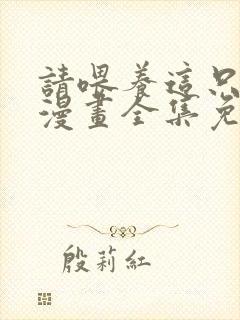 請喂養這只
漫畫全集免
殷莉紅